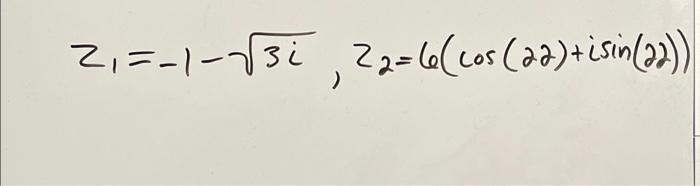 z₁ = -1 - √3i , z₂ = 6(cos(22) + isin(22))